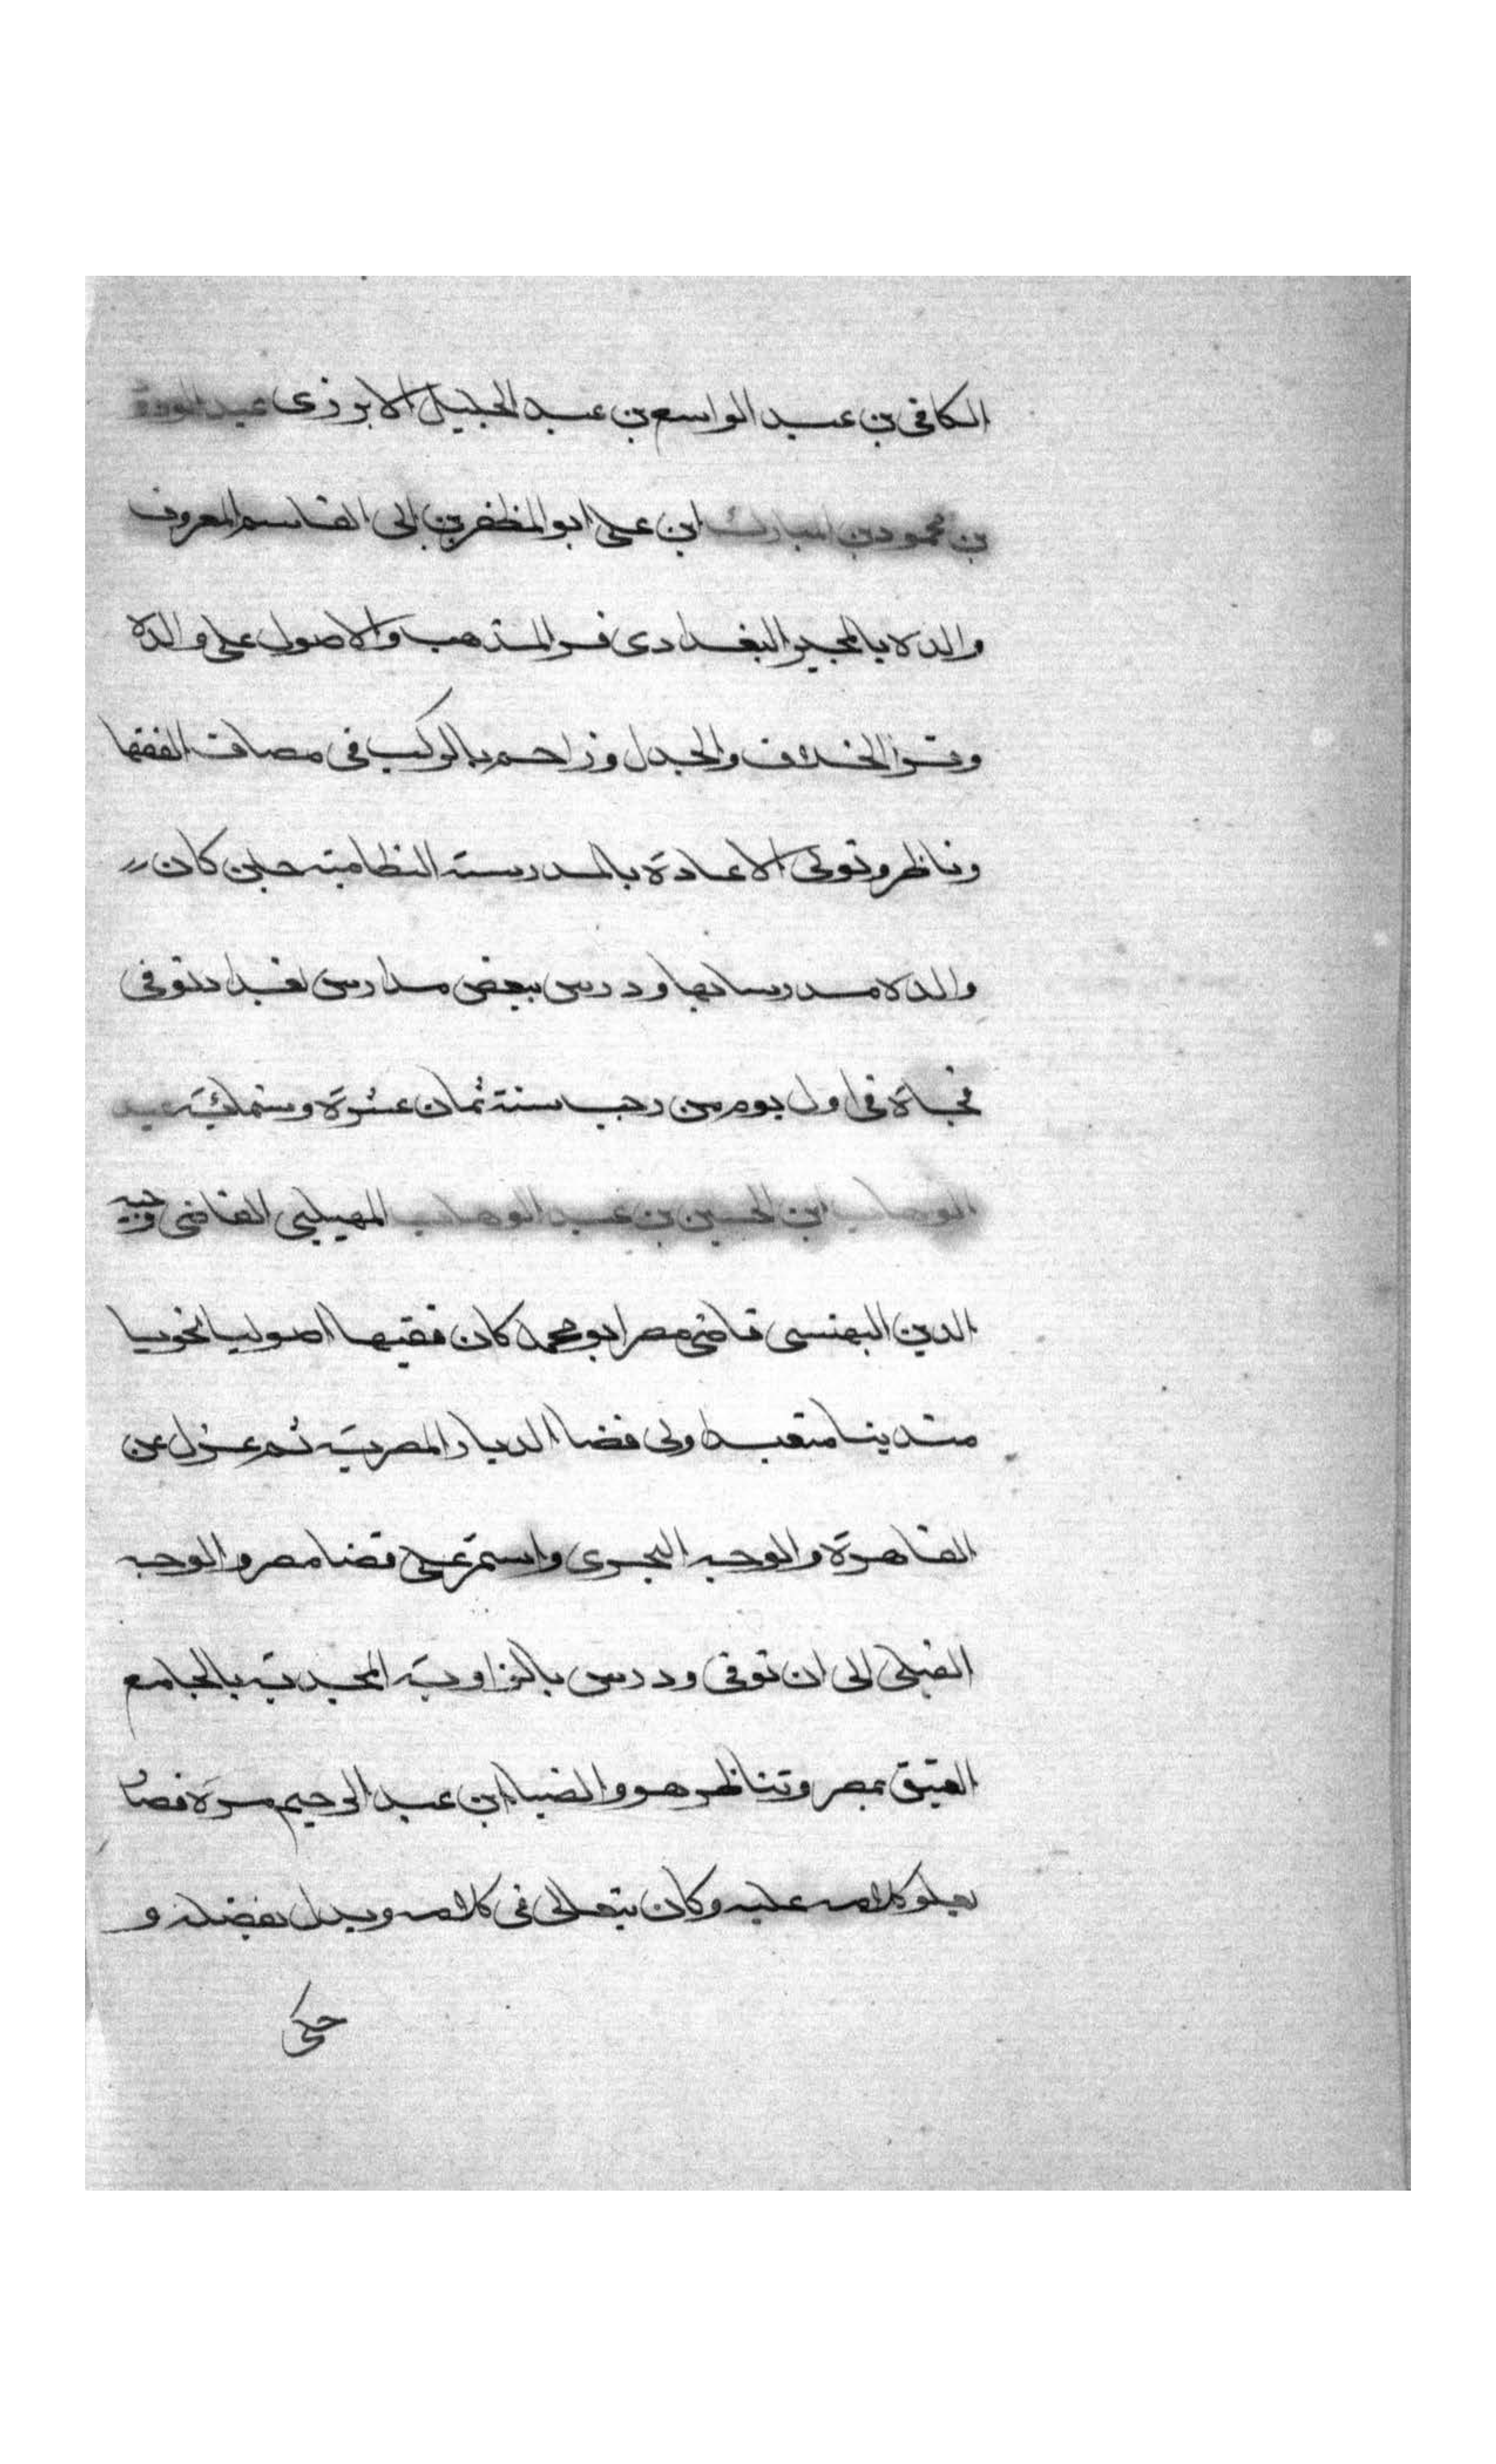 الكافى بن عبد الواسع بن عبد الجليل الابرزى عبد الودود
بن محمود بن المبارك ابن على ابو المظفر بن ابى القاسم المعروف
والده بالمجير البغدادى قرا المذهب والاصول على والده
وقرا الخلاف والجدل وزاحم بالركب فى مصاف الفقها
وناظر وتولى الاعادة بالمدرسة النظامية حين كان
والده مدرسا بها ودرس ببعض مدارس بغداد توفى
فجاة فى اول يوم من رجب سنة ثمان عشرة وستمائة عبد
الوهاب ابن الحسين بن عبد الوهاب المهيلبى القاضى وجيه
الدين البهنسى قاضى مصر ابو محمد كان فقيها اصوليا نحويا
متدينا متعبدا ولى قضا الديار المصرية ثم عزل عن
القاهرة والوجه البحرى واستمر على قضا مصر والوجه
القبلى الى ان توفى ودرس بالزاوية المجدية بالجامع
العتيق بمصر وتناظر هو والضيا ابن عبد الرحيم مرة فصار
يعلو كلامه عليه وكان يتعالى فى كلامه ويدل بفضله و
حكى